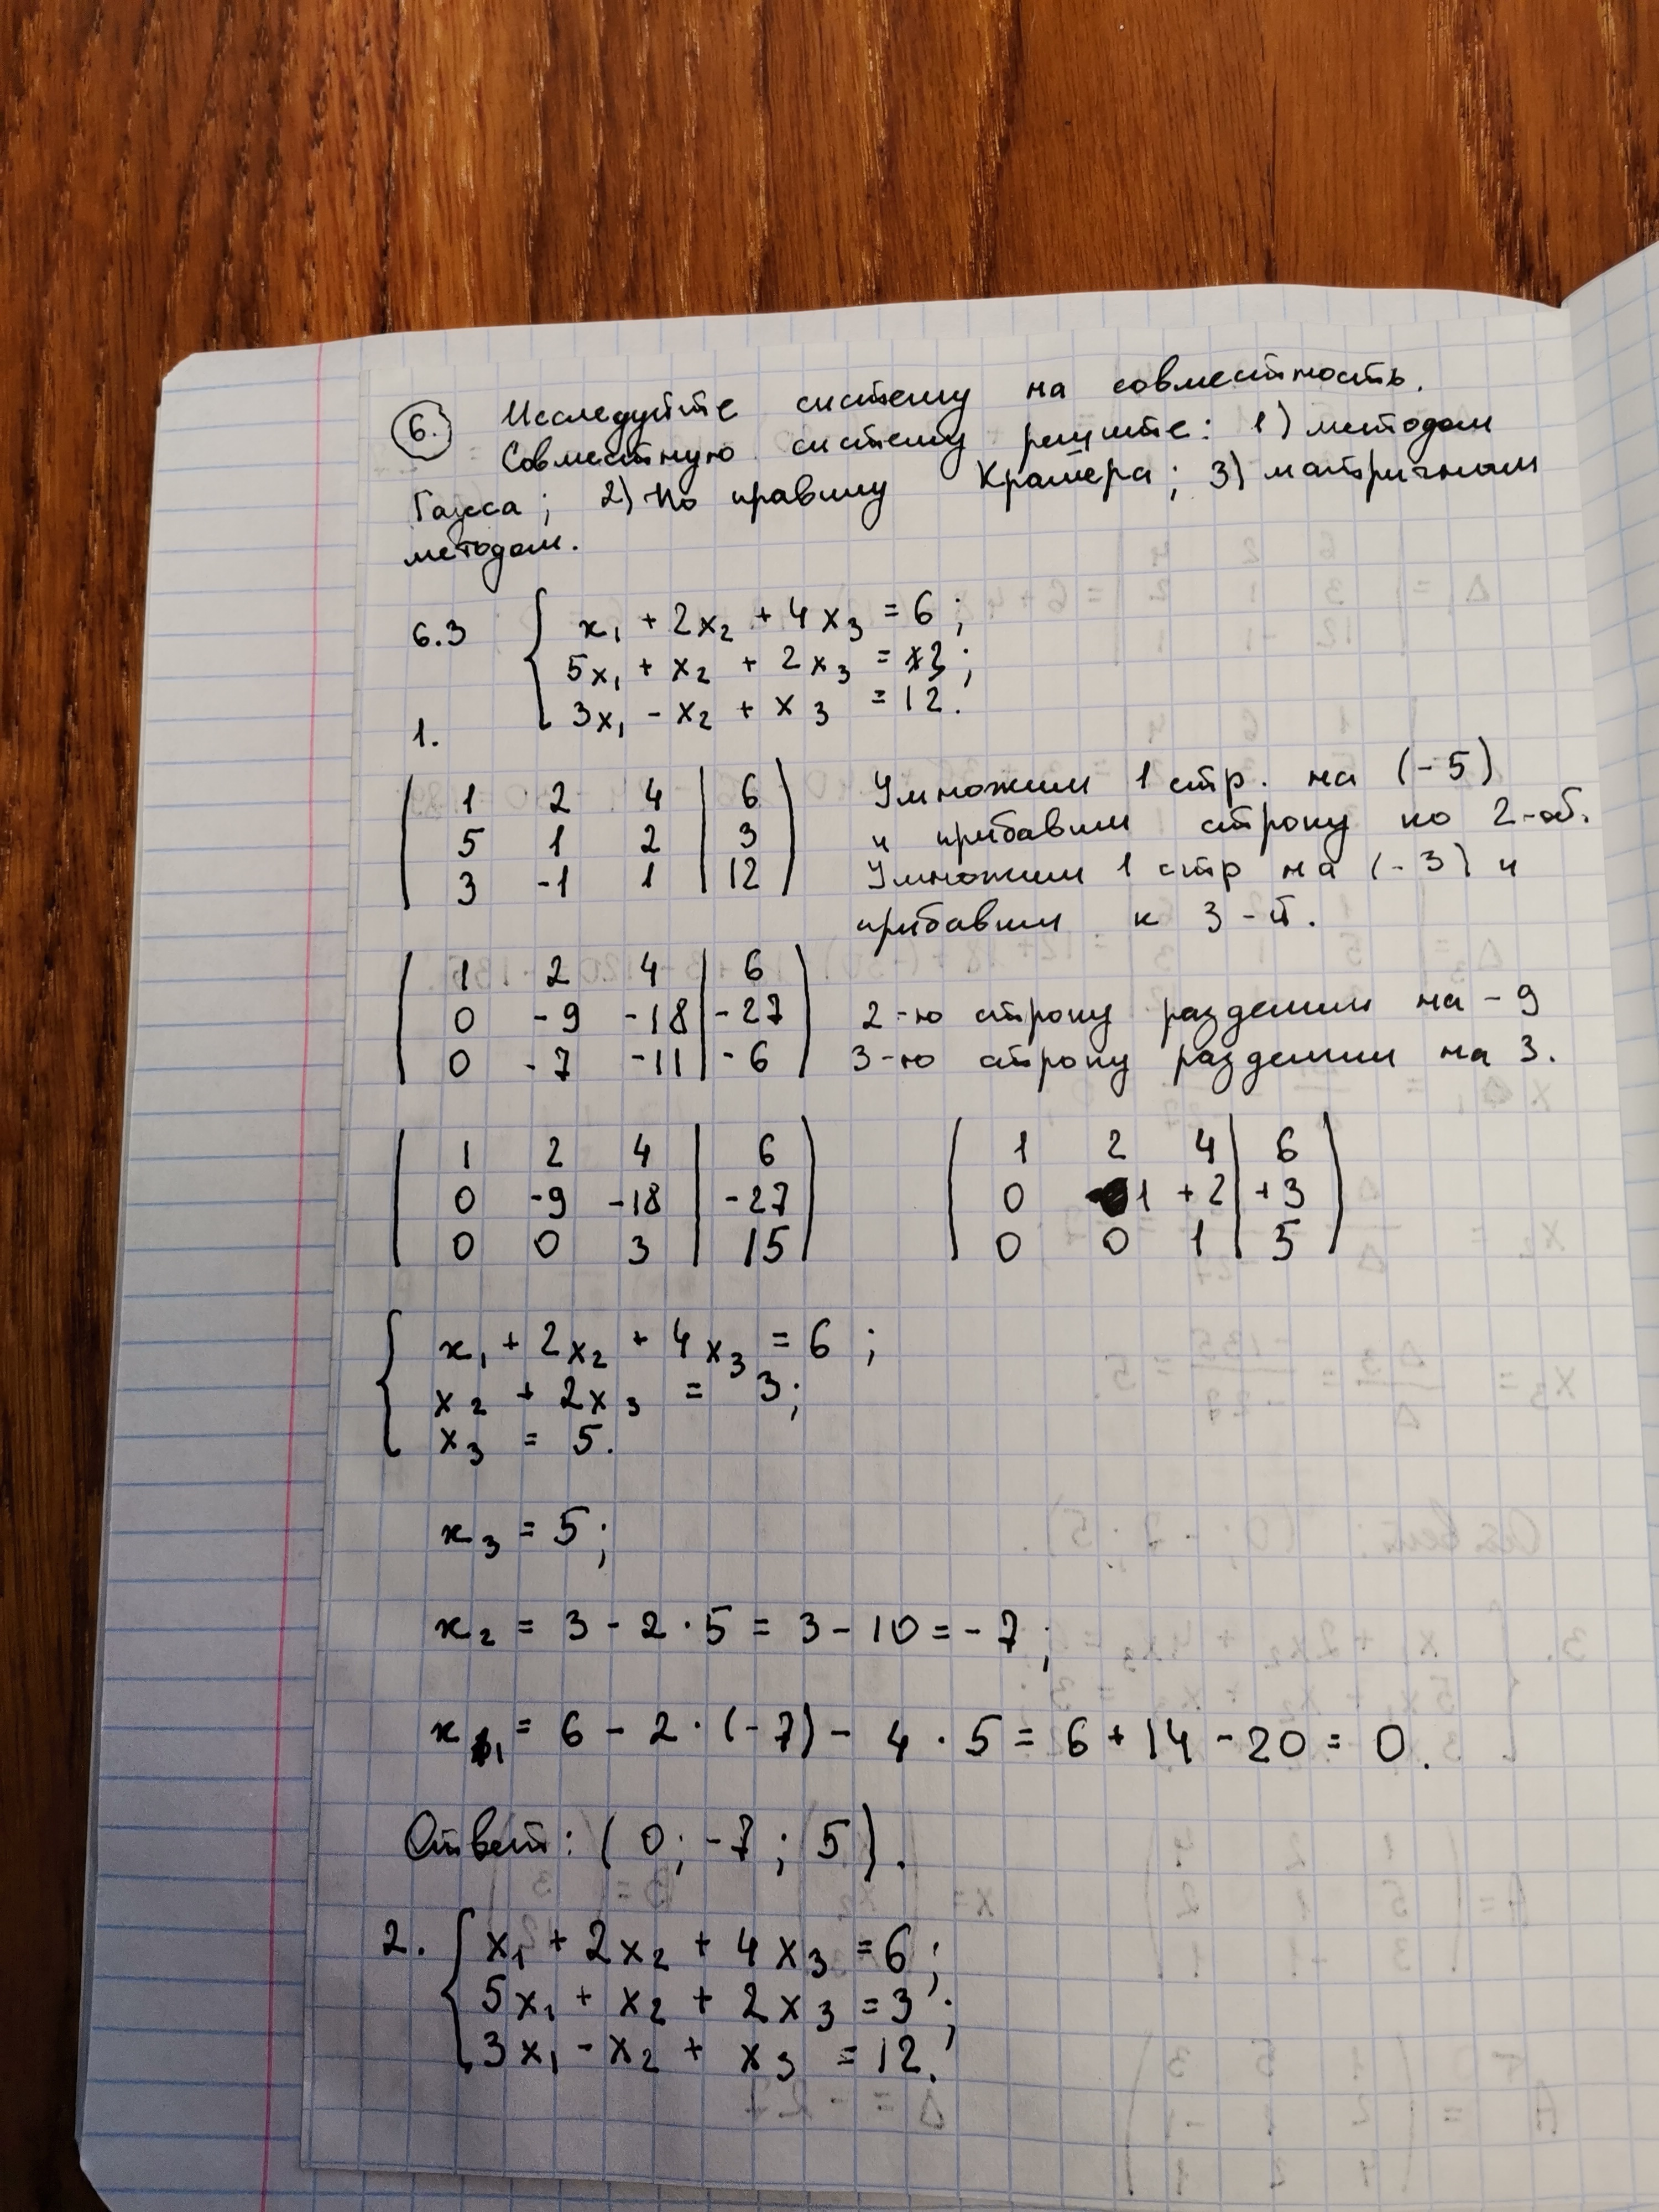 6. Исследуйте систему на совместность.
Совместную систему решите: 1) методом
Гаусса; 2) По правилу Крамера; 3) матричным
методом.
6.3 { x₁ + 2x₂ + 4x₃ = 6;
5x₁ + x₂ + 2x₃ = 3;
3x₁ - x₂ + x₃ = 12.
1.
( 1 2 4 | 6 ) Умножим 1 стр. на (-5)
( 5 1 2 | 3 ) и прибавим строку ко 2-ой.
( 3 -1 1 | 12 ) Умножим 1 стр на (-3) и
прибавим к 3-й.
( 1 2 4 | 6 )
( 0 -9 -18 | -27 ) 2-ю строку разделим на -9
( 0 -7 -11 | -6 ) 3-ю строку разделим на 3.
( 1 2 4 | 6 ) ( 1 2 4 | 6 )
( 0 -9 -18 | -27 ) ( 0 1 +2 | +3 )
( 0 0 3 | 15 ) ( 0 0 1 | 5 )
{ x₁ + 2x₂ + 4x₃ = 6;
x₂ + 2x₃ = 3;
x₃ = 5.
x₃ = 5;
x₂ = 3 - 2 · 5 = 3 - 10 = -7;
x₁ = 6 - 2 · (-7) - 4 · 5 = 6 + 14 - 20 = 0.
Ответ: (0; -7; 5).
2. { x₁ + 2x₂ + 4x₃ = 6;
5x₁ + x₂ + 2x₃ = 3;
3x₁ - x₂ + x₃ = 12.